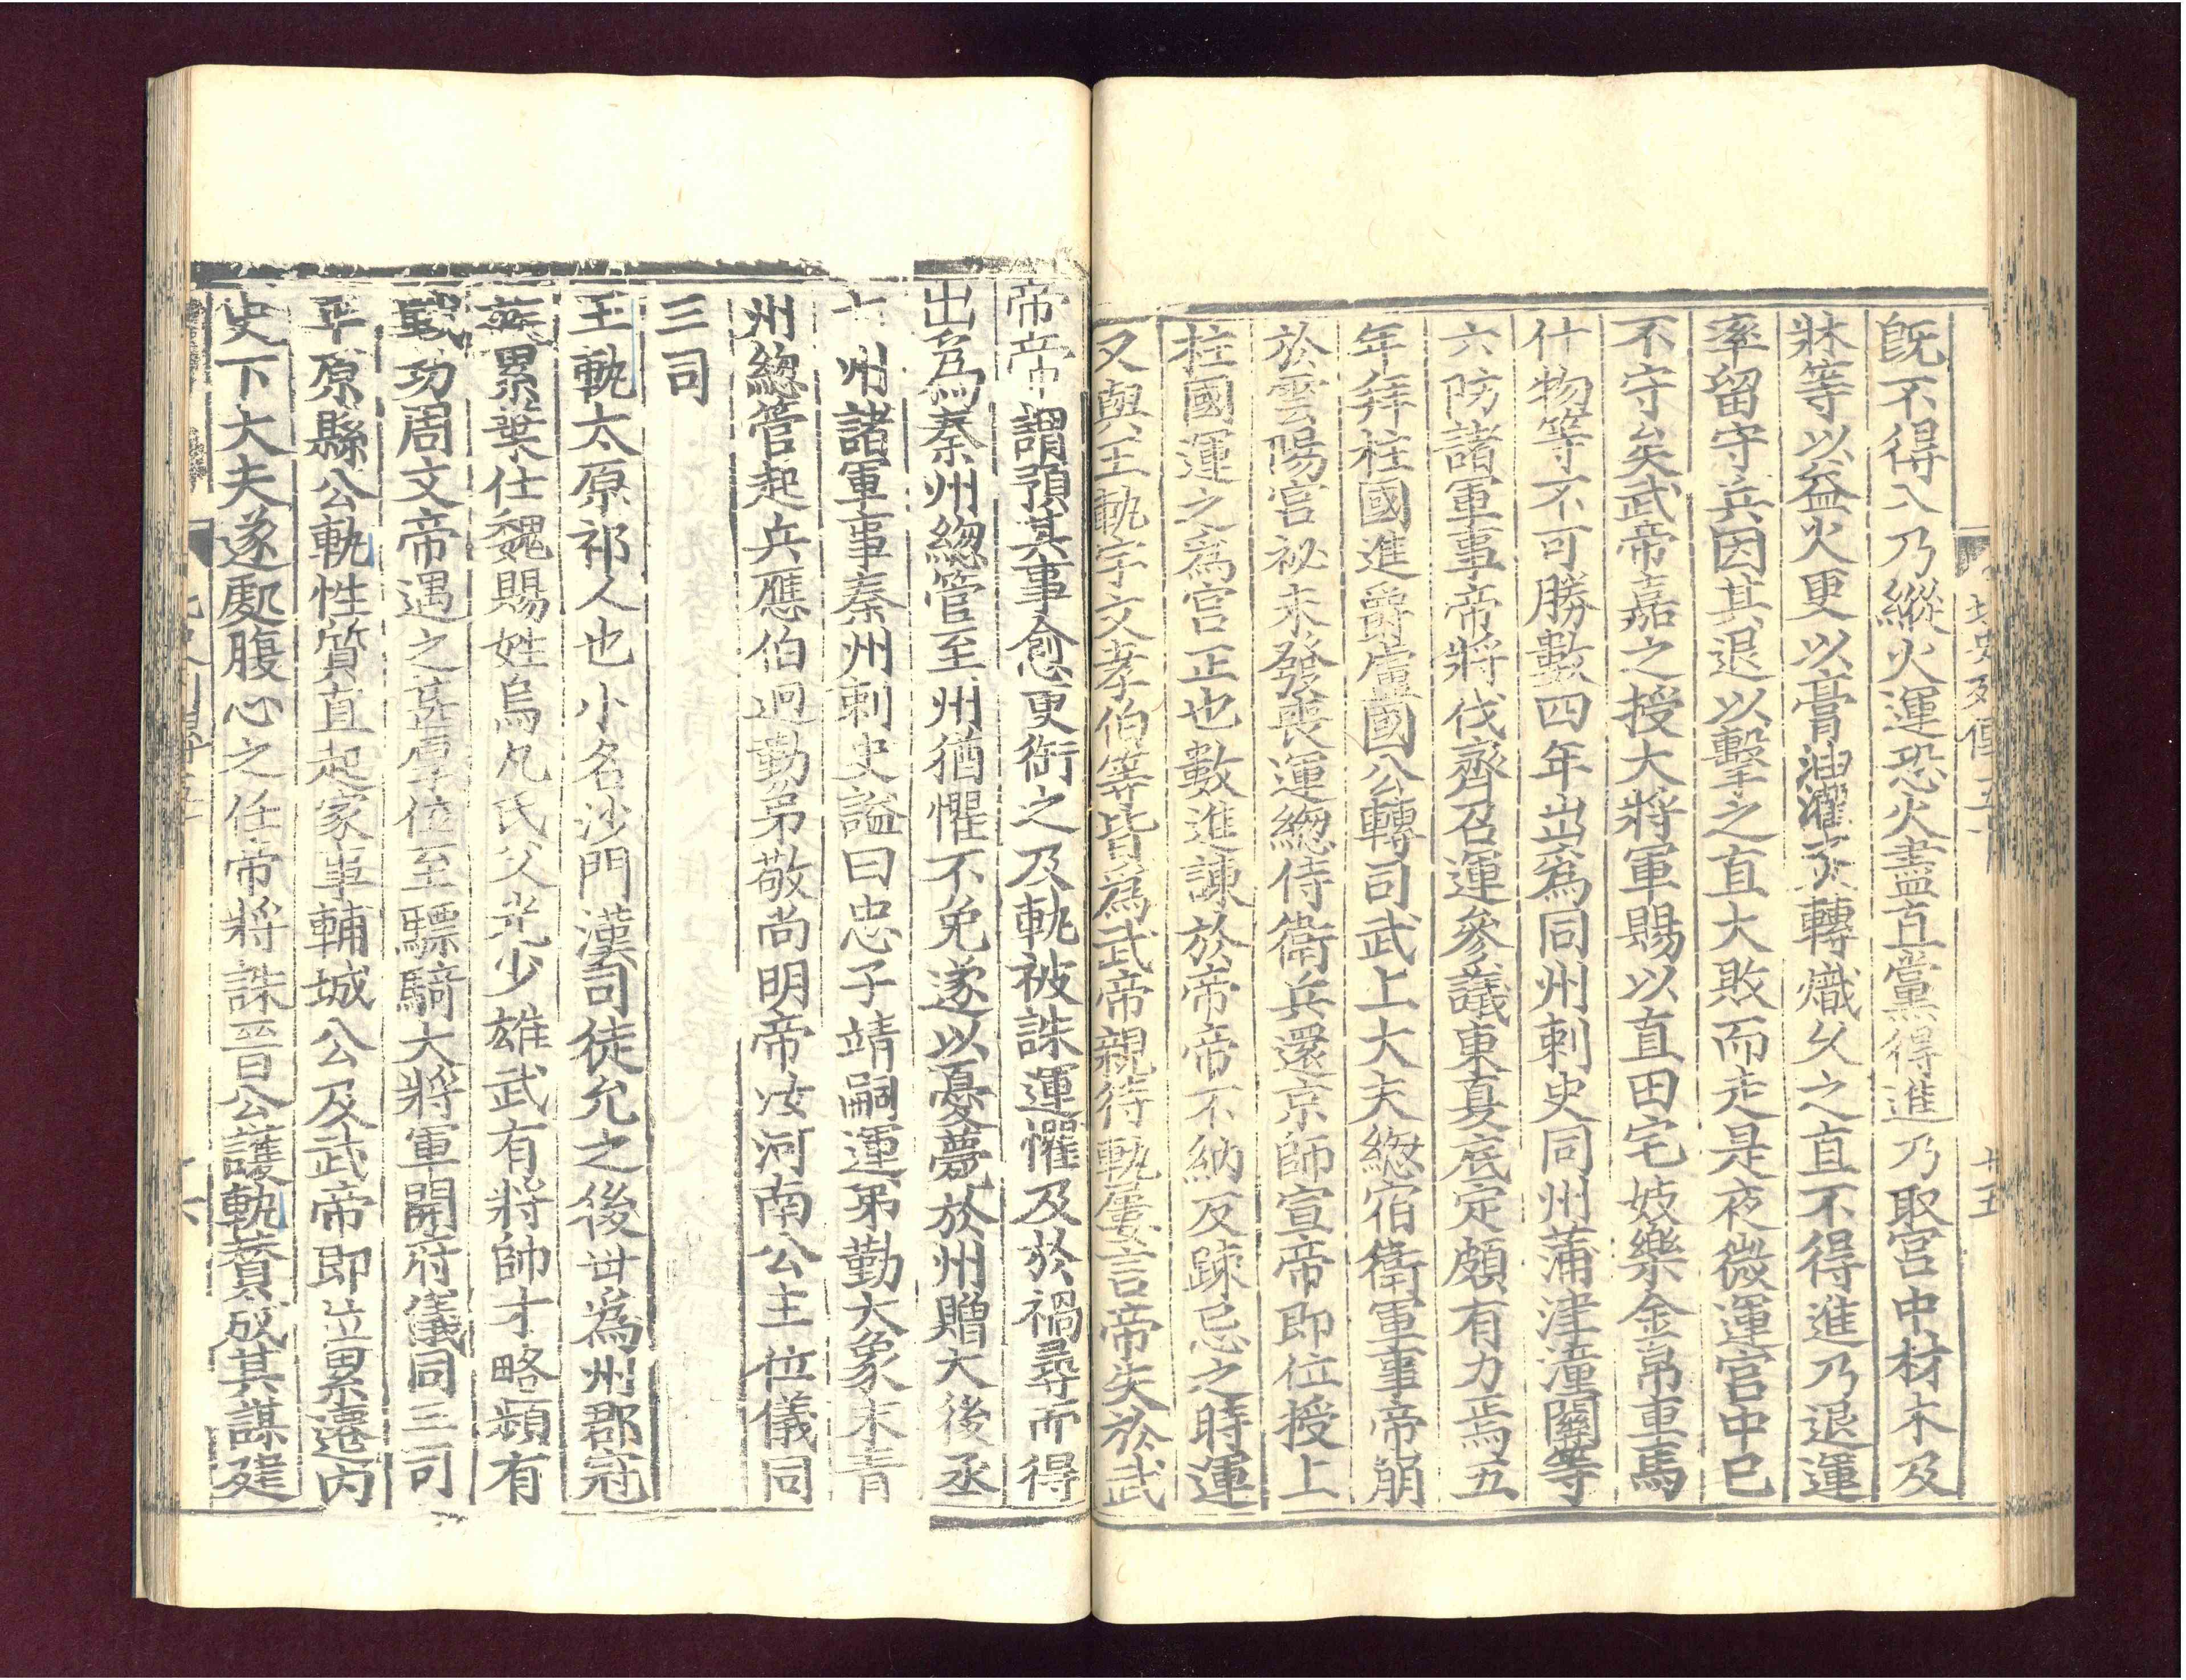 北史列傳五十
十五
旣不得入乃縱火運恐火盡直黨得進乃取宮中材木及
牀等以益火更以膏油灌之轉熾久之直不得進乃退運
率留守兵因其退以擊之直大敗而走是夜微運宮中已
不守矣武帝嘉之授大將軍賜以直田宅妓樂金帛車馬
什物等不可勝數四年出爲同州刺史同州蒲津潼關等
六防諸軍事帝將伐齊召運參議東夏底定頗有力焉五
年拜柱國進爵盧國公轉司武上大夫緫宿衛軍事帝崩
於雲陽宮祕未發喪運緫侍衞兵還京師宣帝即位授上
柱國運之爲宮正也數進諫於帝帝不納反踈忌之時運
又與王軌宇文孝伯等皆爲武帝親待軌屢言帝失於武
帝帝謂預其事愈更銜之及軌被誅運懼及於禍尋而得
出爲秦州緫管至州猶懼不免遂以憂薨於州贈大後丞
七州諸軍事秦州刺史謚曰忠子靖嗣運弟勤大象末青
州緫管起兵應伯迥勤弟敬尚明帝女河南公主位儀同
三司
王軌太原祁人也小名沙門漢司徒允之後世爲州郡冠
族累葉仕魏賜姓烏丸氏父光少雄武有將帥才略頻有
戰功周文帝遇之甚厚位至驃騎大將軍開府儀同三司
平原縣公軌性質直起家事輔城公及武帝即位累遷內
史下大夫遂處腹心之任帝將誅晉公護軌贊成其謀建